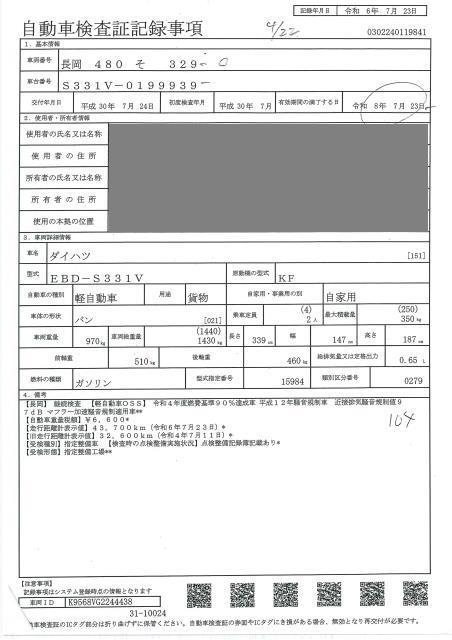 記録年月日 令和 6年 7月 23日
自動車検査証記録事項
4/22
0302240119841
1. 基本情報
車両番号 長岡 480 そ 329 - 0
車台番号 S331V-0199939
交付年月日 平成30年 7月 24日 初度検査年月 平成30年 7月 有効期間の満了する日 令和 8年 7月 23日
2. 使用者・所有者情報
使用者の氏名又は名称
使用者の住所
所有者の氏名又は名称
所有者の住所
使用の本拠の位置
3. 車両詳細情報
車名 ダイハツ [151]
型式 EBD-S331V 原動機の型式 KF
自動車の種別 軽自動車 用途 貨物 自家用・事業用の別 自家用
車体の形状 バン [021] 乗車定員 (4) 2人 最大積載量 (250) 350kg
車両重量 970kg 車両総重量 (1440) 1430kg 長さ 339cm 幅 147cm 高さ 187cm
前軸重 510kg 後軸重 460kg 総排気量又は定格出力 0.65 L
燃料の種類 ガソリン 型式指定番号 15984 類別区分番号 0279
4. 備考
【長岡】 継続検査 【軽自動車OSS】 令和4年度燃費基準90%達成車 平成12年騒音規制車 近接排気騒音規制値9
7dB マフラー加速騒音規制適用車**
【自動車重量税額】¥6,600*
【走行距離計表示値】43,700km(令和6年7月23日)*
【旧走行距離計表示値】32,600km(令和4年7月11日)*
【受検種別】指定整備車 【検査時の点検整備実施状況】点検整備記録簿記載あり*
【受検形態】指定整備工場**
104
【注意事項】
記録事項はシステム登録時点の情報となります
車両ID K9568VG2244438
31-10024
車検査証のICタグ部分は折り曲げずに保管ください。自動車検査証の券面やICタグにき損がある場合、無効となり再交付が必要です。